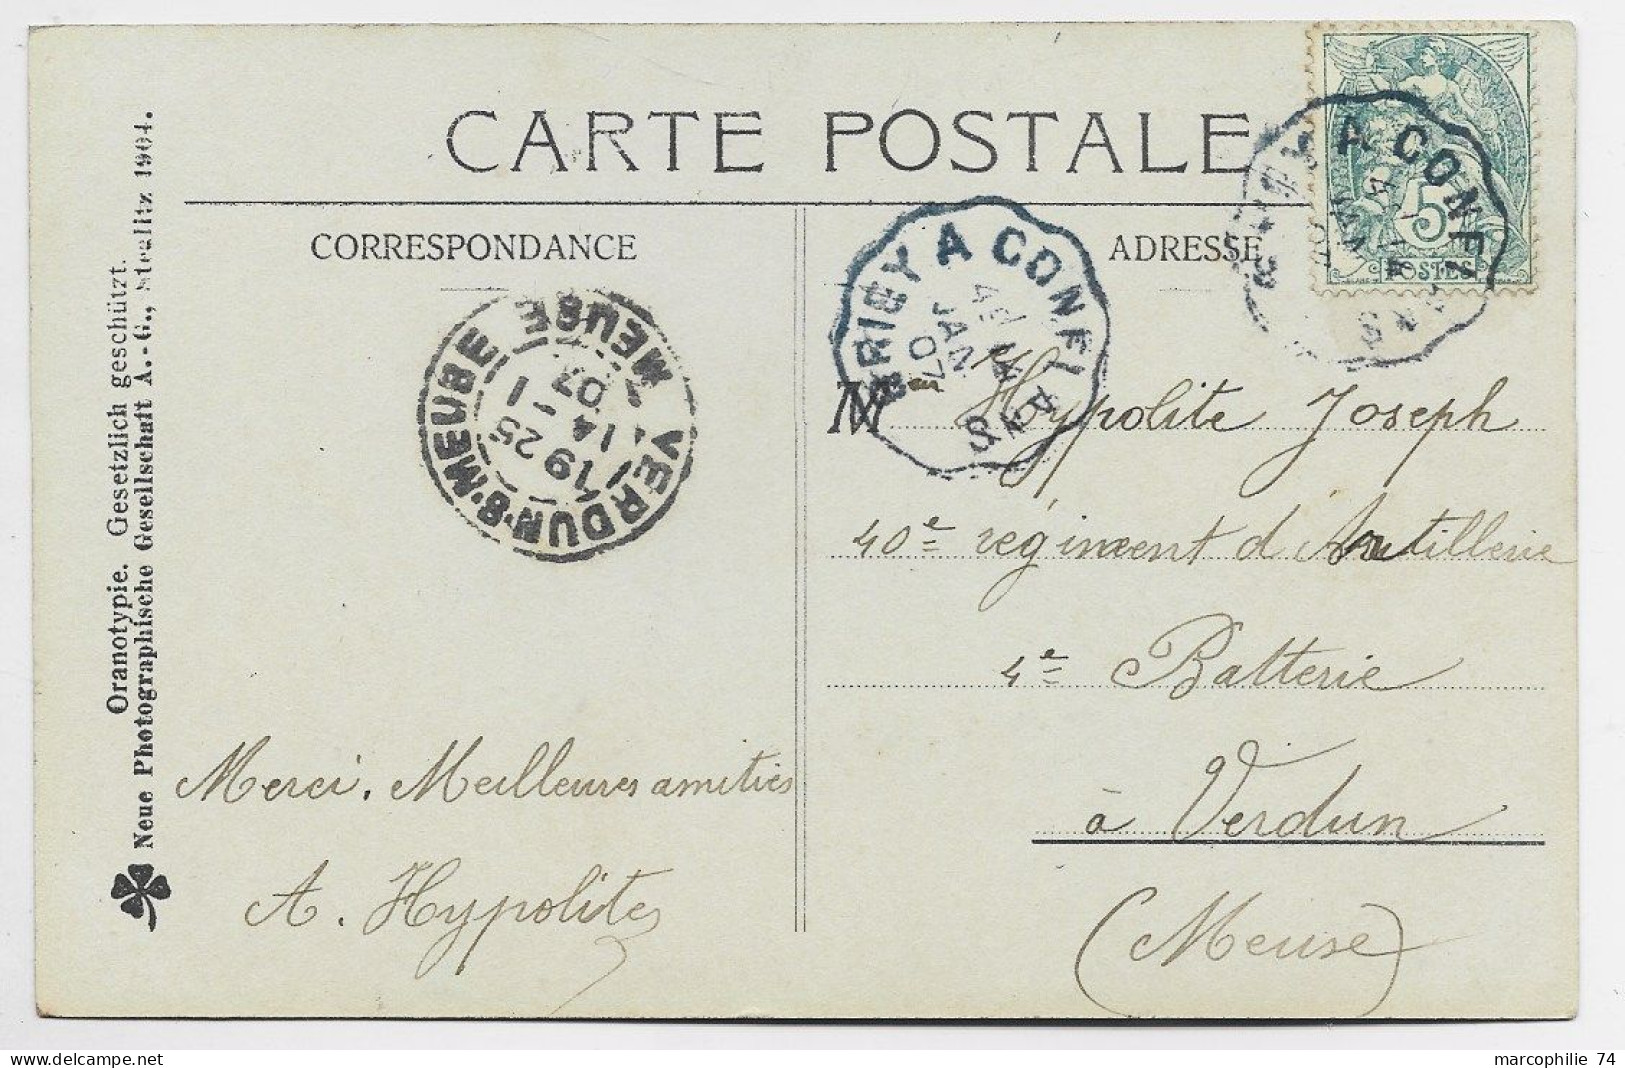 CARTE POSTALE
CORRESPONDANCE
ADRESSE
Oranotypie. Gesetzlich geschützt.
Neue Photographische Gesellschaft A.-G., Steglitz 1904.
5
POSTES
BRIEY A CONFLANS
4E
14
JAN
07
BRIEY A CONFLANS
VERDUN-S-MEUSE MEUSE
19 25
14 - 1
07
Mr Hypolite Joseph
40e régiment d'Artillerie
4e Batterie
à Verdun
(Meuse)
Merci. Meilleures amitiés
A. Hypolite
marcophilie 74